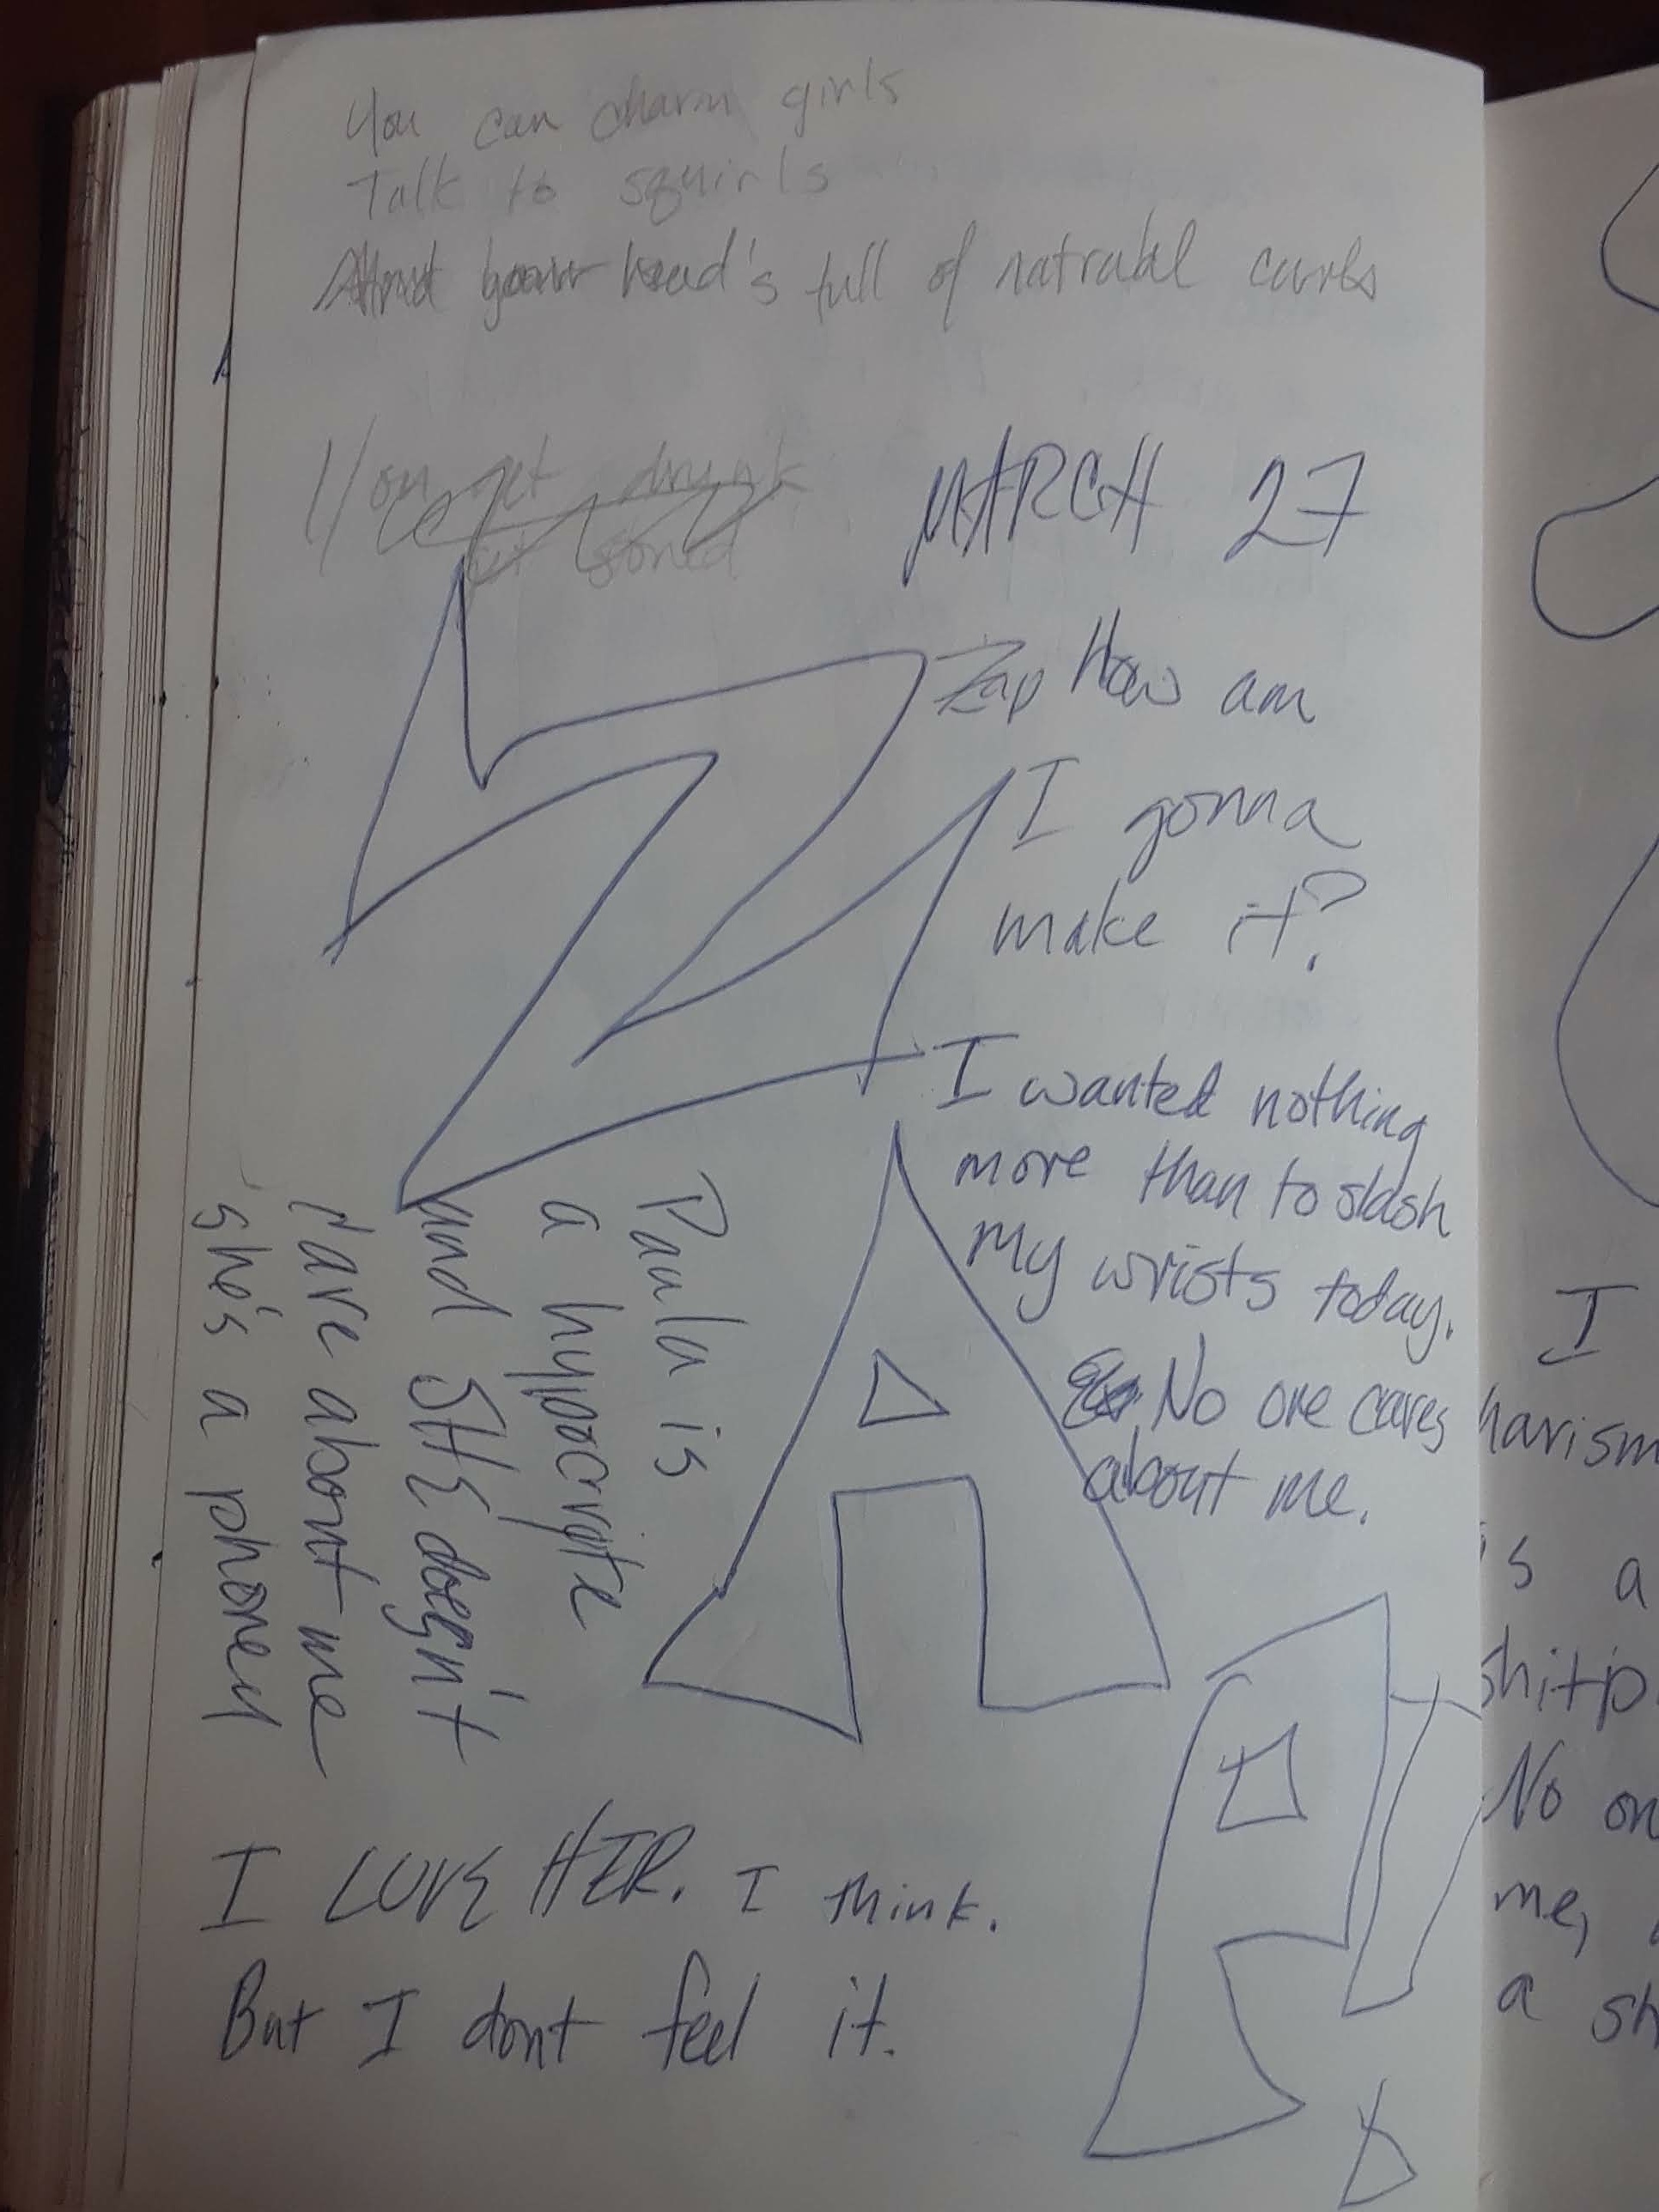 You can charm girls
Talk to squirls
And your head's full of natrabl curls
You get drunk
get stoned
MARCH 27
Zap How am
I gonna
make it?
I wanted nothing
more than to slash
My wrists today.
No one cares
about me.
ZAP!
Paula is
a hypocrite
and SHE doesn't
care about me
she's a phoney
I LOVE HER. I think.
But I dont feel it.
I
harism
s a
shitp
No on
me,
a sh